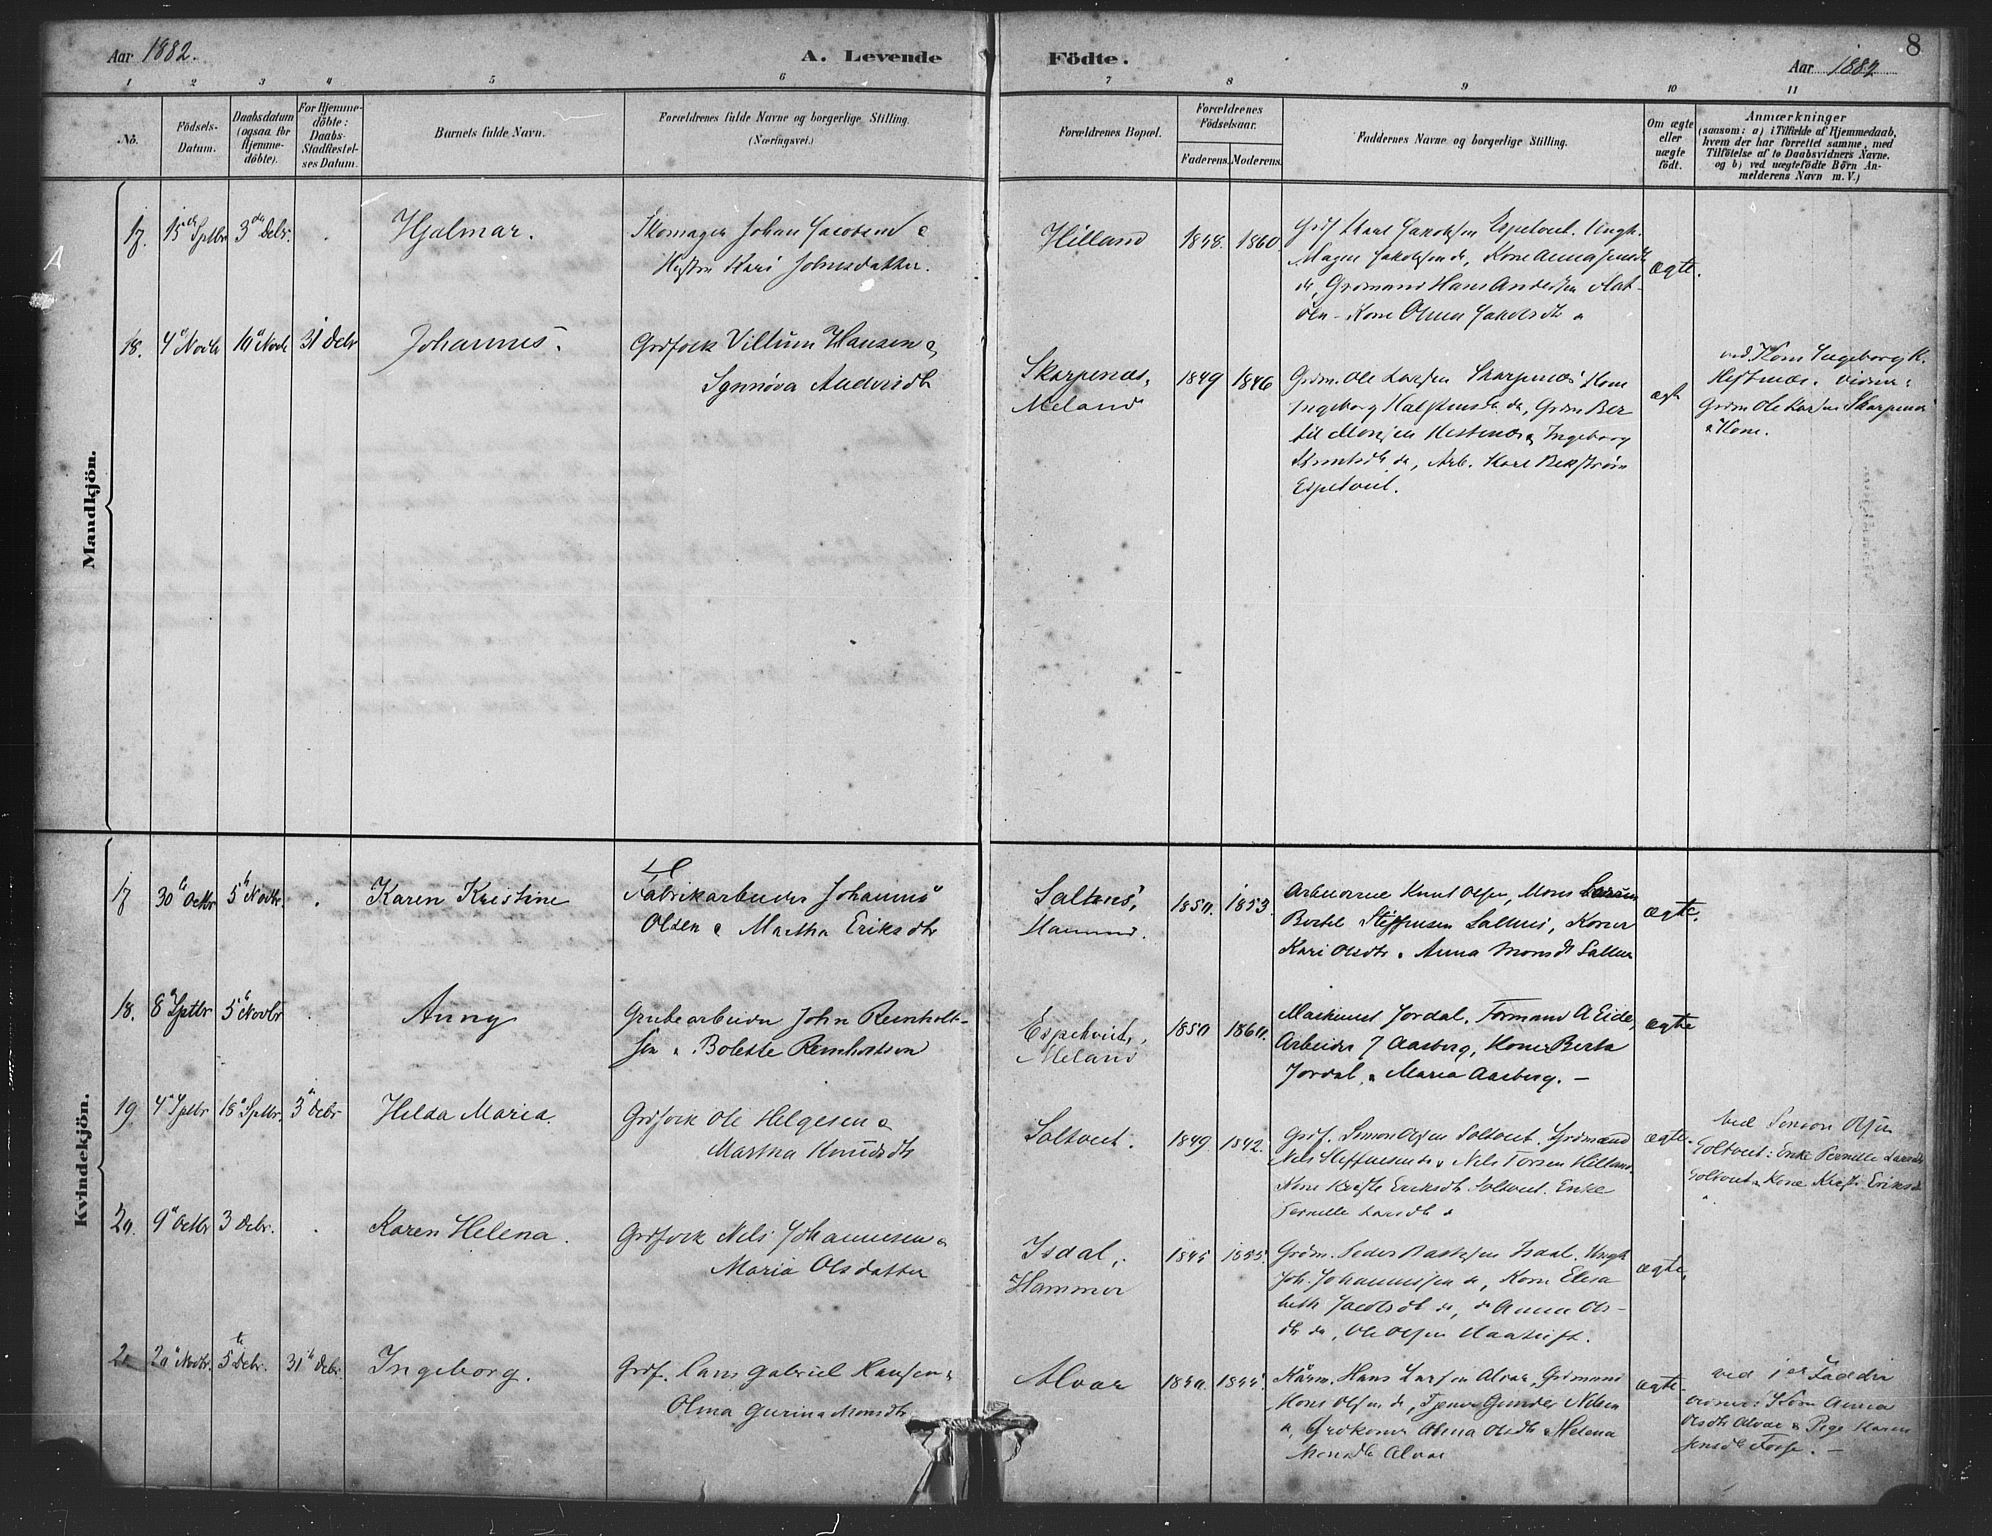 8
Aar 1882.
A. Levende Födte.
Aar 1882
1 2 3 4 5 6 7 8 9 10 11
No.
Födsels-Datum.
Daabsdatum (ogsaa for Hjemme-döbte).
For Hjemme-döbte: Daabs-Stadfæstel-ses Datum.
Barnets fulde Navn.
Forældrenes fulde Navne og borgerlige Stilling. (Næringsvei.)
Forældrenes Bopæl.
Forældrenes Födselsaar.
Faderens. Moderens.
Faddernes Navne og borgerlige Stilling.
Om ægte eller uægte födt.
Anmærkninger
(saasom: a) i Tilfælde af Hjemmedaab, hvem der har forrettet samme, med Tilföielse af to Daabsvidners Navne. og b) ved uægtefödte Börn An-melderens Navn m. V.)
Mandkjön.
17. 15 Sptbr 3 Debr. Hjalmar. Skomager Johan Jacobsen &
Hustru Kari Johnsdatter.
Hilland 1848. 1860
Magne Jakobsen do, Kone Anna
do, Grdmand Hans Andersen
Kone Olina Jakobsdt
ægte.
18. 4 Novbr 19 Novb 31 Debr Johannes. Grdfolk Villum Hansen &
Synnøva Andersdt
Skarpenæs, Meland 1849 1846
Grdm. Ole Larsen Skarpenæs Kone
Ingeborg do, Grdm Ber
til Monsen Hestenæs & Ingeborg
Knutsdt do, Arb. Karl Bekström
Espetveit.
ægt
ved Kone Ingeborg K.
Hestnæs. vidner:
Grdm Ole Larsen Skarpenæs
& Kone.
Kvindekjön.
17 30 Octbr 5 Novbr. Karen Kristine Fabrikarbeider Johannes
Olsen & Martha Eriksdtr
Saltnes, Hammer. 1850. 1853.
Arbeiderne Knut Olsen, Mons Larsen
Bertel Steffensen Saltnes, Koner
Kari Olsdtr & Anna Monsdt Saltnes
ægte.
18. 8 Sptbr 5 Novbr Anny Grubearbeider John Reinholt-
sen & Bolette Reinholtsen
Espetveit, Meland 1850 1860.
Maskinist Jordal, Formand A Eide,
Arbeider J Aasberg, Koner Berta
Jordal, & Maria Aasberg. —
ægte
19. 4 Sptbr 18 Sptbr. 3 Debr Helda Maria. Grdfolk Ole Helgesen &
Martha Knudsdtr
Soltveit. 1849. 1842.
Grdf. Simon Olsen Soltveit. Grdmænd
Nels Steffensen do & Nels Torsen Hilland.
Kone Kristi Eriksdt Soltveit. Enke
Pernille Larsdt do
ægte.
ved Simon Olsen
Soltveit: Enke Pernille Larsdt
Soltveit & Kone Kristi Eriksdt
20. 9 Octbr 3 Debr. Karen Helena. Grdfolk Nels Johannesen &
Maria Olsdatter
Isdal, Hammer 1845 1855.
Grdm. Peder Isdal. Ungk
Joh. Johannessen do, Kone Elisa
beth Jacobsdt do, do Anna Ols-
dtr do, Ole Olsen
ægte.
21 20 Novbr. 5 Debr. 31 Debr. Ingeborg. Grdf. Hans Gabriel Hansen &
Olina Gurina Monsdtr
Alvær 1840. 1845.
Kårm. Hans Larsen Alvær, Grdmand
Mons Olsen do, Tjener Gunder Nelsen
do, Grdkoner Anna Olsdt & Helena
Monsdt Alvær
ægte.
ved 1ste Fadder
vidner: Kone Anna
Olsdt Alvær & Pige Karen
Jensdt Fosse. —